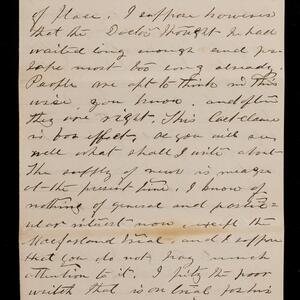 of place. I suppose however
that the Doctor thought he had
waited long enough and per-
haps most too long already.
People are apt to think in this
wise you know. and often
they are right. This last clause
is for effect, as you will see
well what shall I write about
The supply of news is meager
at the present time. I know of
nothing of general and partic-
ular interest now except the
McFarland trial, and I suppose
that you do not pay much
attention to it. I pity the poor
wretch that is on trial for his